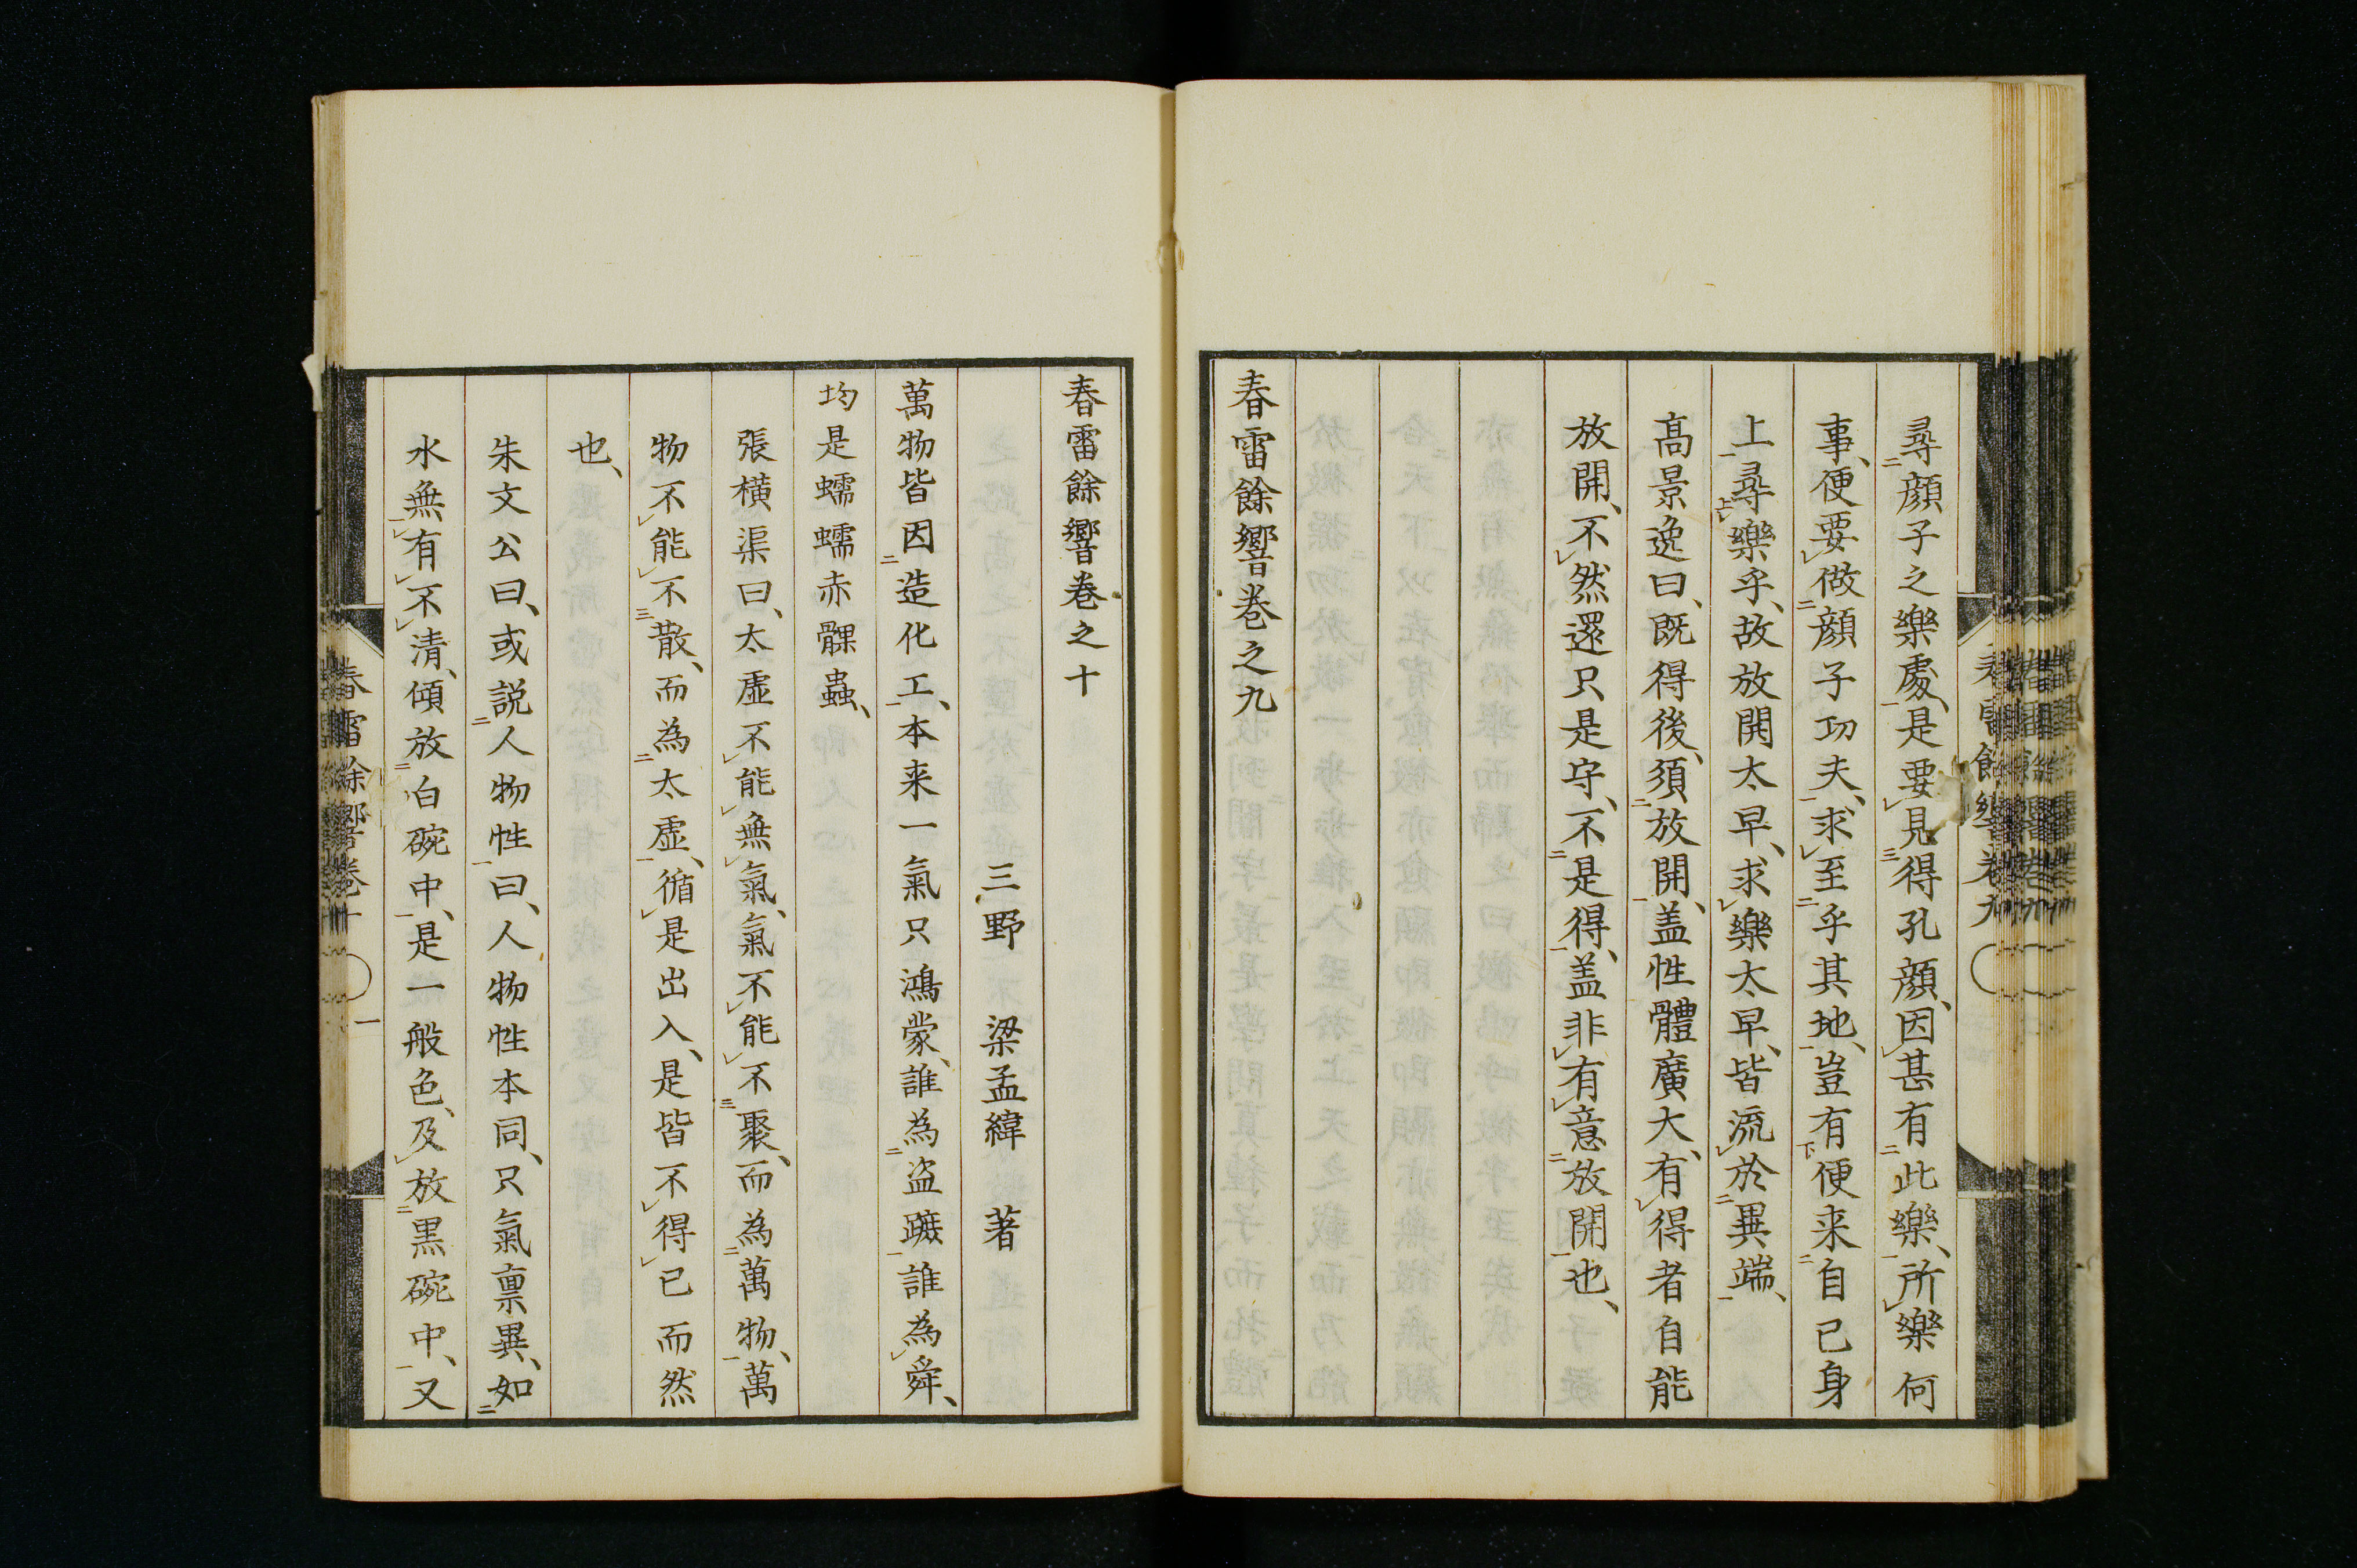 尋顔子之樂處、是要見得孔顔、因甚有此樂、所樂何
事、便要做顔子功夫、求至乎其地、豈有便来自已身
上尋樂乎、故放開太早、求樂太早、皆流於異端、
髙景逸曰、既得後、須放開、盖性體廣大、有得者自能
放開、不然還只是守、不是得、盖非有意放開也、
春雷餘響卷之九
春雷餘響卷之十
三野 梁孟緯 著
萬物皆因造化工、本来一氣只鴻蒙、誰為盗蹠誰為舜、
均是蠕蠕赤髁蟲、
張横渠曰、太虚不能無氣、氣不能不聚、而為萬物、萬
物不能不散、而為太虚、循是出入、是皆不得已而然
也、
朱文公曰、或説人物性曰、人物性本同、只氣禀異、如
水無有不清、傾放白碗中、是一般色、及放黒碗中、又
春雷餘響卷十 一